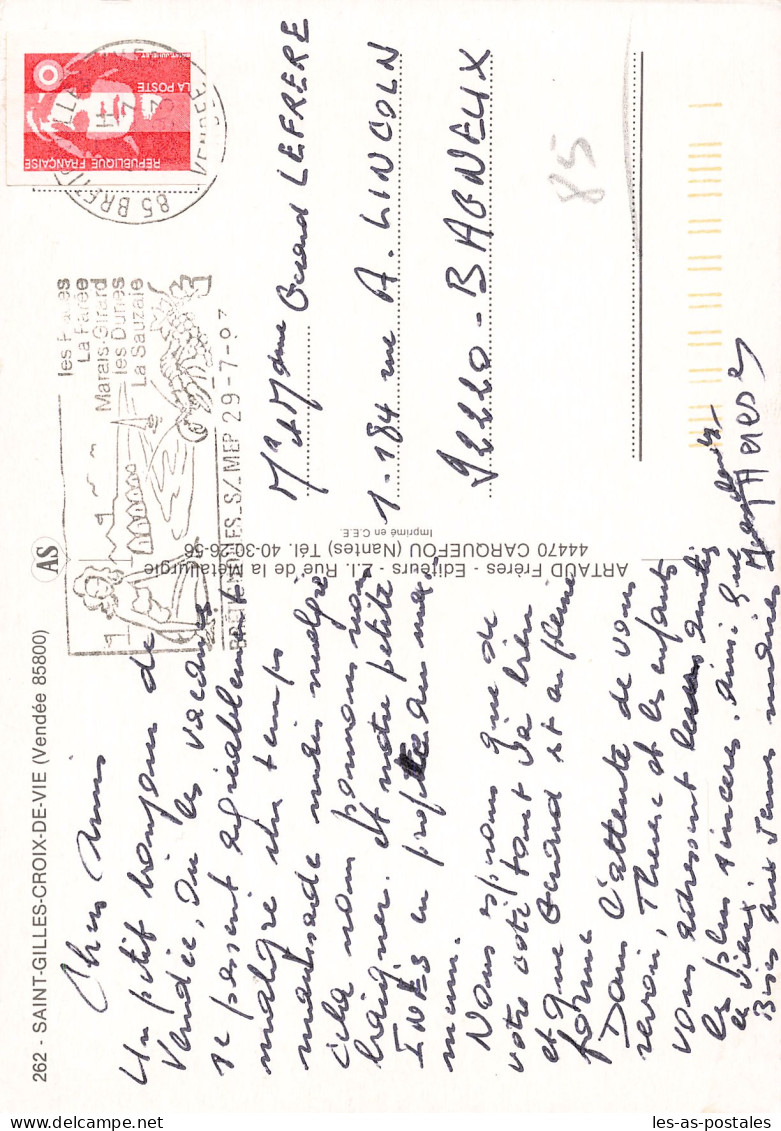 262 - SAINT-GILLES-CROIX-DE-VIE (Vendée 85800)
Chers Amis
Un petit bonjour de
Vendée, où les vacances
se passent agréablement
malgré un temps
maussade mais malgré
cela nous pouvons nous
baigner. et notre petite
INÈS en profite au max.
mum.
Nous esperons que de
votre coté tout va bien
et que Gérard est en pleine
forme
Dans l'attente de vous
revoir, Therese et les enfants
vous adressent leurs amitiés
les plus sinceres, ainsi que
le vieux.
Bises aux jeunes mariés
Therese
AS
ARTAUD Frères - Editeurs - Z.I. Rue de la Métallurgie
44470 CARQUEFOU (Nantes) Tél. 40-30-26-56
Imprimé en C.E.E.
LA POSTE
REPUBLIQUE FRANÇAISE
85 BRETIGNOLLES
VENDEE
La Parée
Marais Girard
les Dunes
La Sauzaie
BRETIGNOLLES S/MER 29-7-93
Mr et Mme Gérard LEFRERE
1-184 rue A. LINCOLN
92220-BAGNEUX
85
les-as-postales